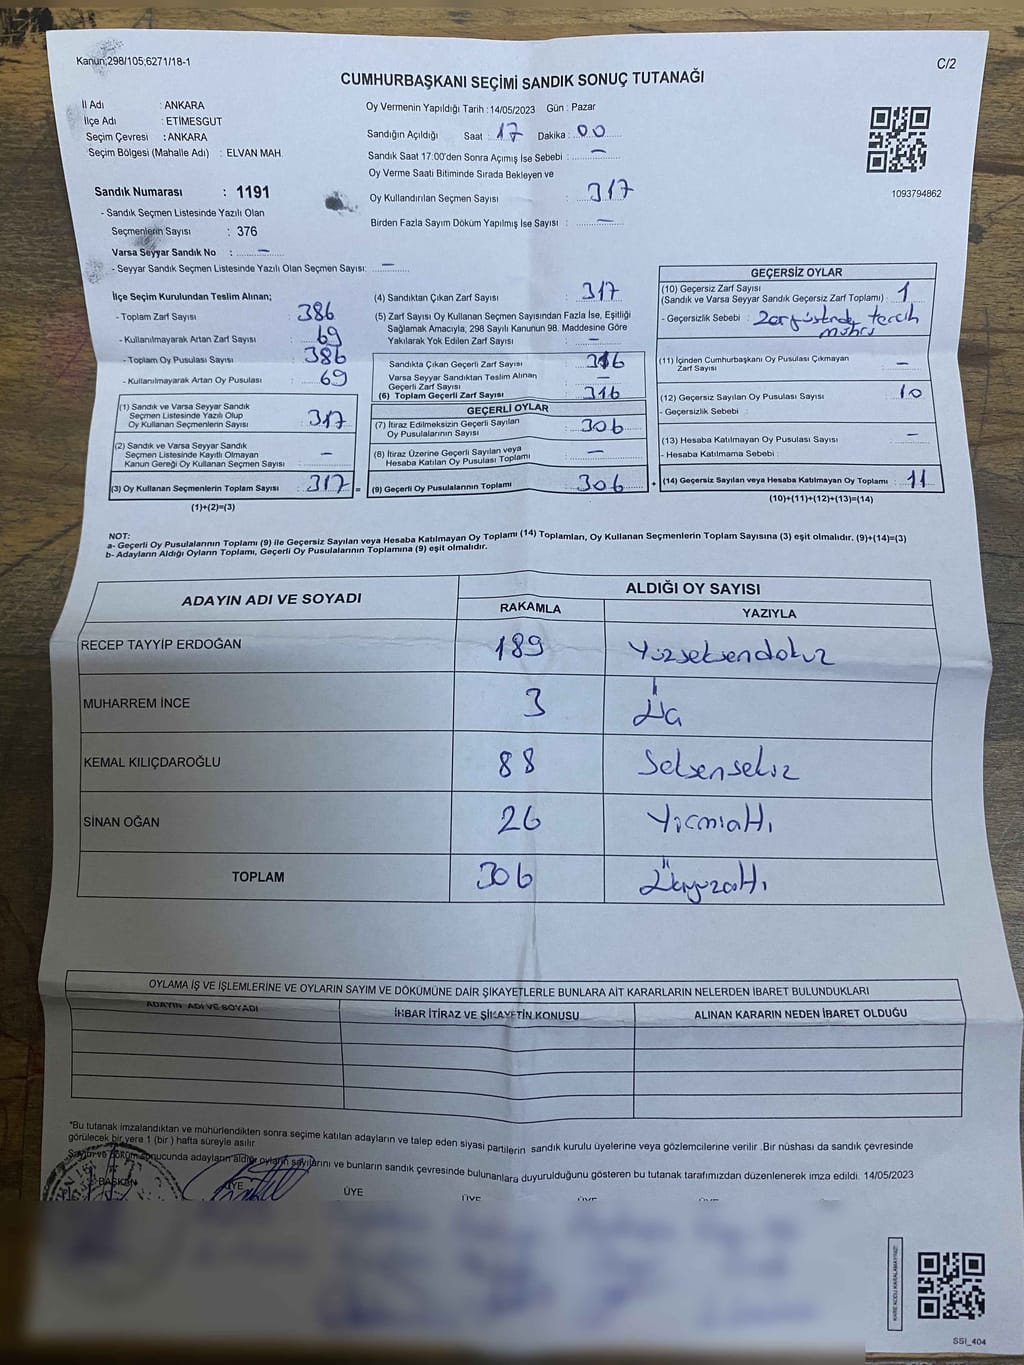 Kanun;298/105;6271/18-1
C/2
CUMHURBAŞKANI SEÇİMİ SANDIK SONUÇ TUTANAĞI
İl Adı : ANKARA
İlçe Adı : ETİMESGUT
Seçim Çevresi : ANKARA
Seçim Bölgesi (Mahalle Adı) : ELVAN MAH.
Sandık Numarası : 1191
- Sandık Seçmen Listesinde Yazılı Olan
Seçmenlerin Sayısı : 376
Varsa Seyyar Sandık No : –
- Seyyar Sandık Seçmen Listesinde Yazılı Olan Seçmen Sayısı: –
Oy Vermenin Yapıldığı Tarih : 14/05/2023 Gün : Pazar
Sandığın Açıldığı Saat : 17 Dakika : 00
Sandık Saat 17:00'den Sonra Açımış İse Sebebi : –
Oy Verme Saati Bitiminde Sırada Bekleyen ve
Oy Kullandırılan Seçmen Sayısı : 317
Birden Fazla Sayım Döküm Yapılmış İse Sayısı : –
1093794862
İlçe Seçim Kurulundan Teslim Alınan;
- Toplam Zarf Sayısı : 386
- Kullanılmayarak Artan Zarf Sayısı : 69
- Toplam Oy Pusulası Sayısı : 386
- Kullanılmayarak Artan Oy Pusulası : 69
(1) Sandık ve Varsa Seyyar Sandık
Seçmen Listesinde Yazılı Olup
Oy Kullanan Seçmenlerin Sayısı : 317
(2) Sandık ve Varsa Seyyar Sandık
Seçmen Listesinde Kayıtlı Olmayan
Kanun Gereği Oy Kullanan Seçmen Sayısı : –
(3) Oy Kullanan Seçmenlerin Toplam Sayısı : 317 =
(1)+(2)=(3)
(4) Sandıktan Çıkan Zarf Sayısı : 317
(5) Zarf Sayısı Oy Kullanan Seçmen Sayısından Fazla İse, Eşitliği
Sağlamak Amacıyla, 298 Sayılı Kanunun 98. Maddesine Göre
Yakılarak Yok Edilen Zarf Sayısı : –
Sandıkta Çıkan Geçerli Zarf Sayısı : 316
Varsa Seyyar Sandıktan Teslim Alınan
Geçerli Zarf Sayısı : –
(6) Toplam Geçerli Zarf Sayısı : 316
GEÇERLİ OYLAR
(7) İtiraz Edilmeksizin Geçerli Sayılan
Oy Pusulalarının Sayısı : 306
(8) İtiraz Üzerine Geçerli Sayılan veya
Hesaba Katılan Oy Pusulası Toplamı : –
(9) Geçerli Oy Pusulalarının Toplamı : 306 +
GEÇERSİZ OYLAR
(10) Geçersiz Zarf Sayısı
(Sandık ve Varsa Seyyar Sandık Geçersiz Zarf Toplamı) : 1
- Geçersizlik Sebebi : Zarf üstünde tercih
mührü
(11) İçinden Cumhurbaşkanı Oy Pusulası Çıkmayan
Zarf Sayısı : –
(12) Geçersiz Sayılan Oy Pusulası Sayısı : 10
- Geçersizlik Sebebi :
(13) Hesaba Katılmayan Oy Pusulası Sayısı : –
- Hesaba Katılmama Sebebi :
(14) Geçersiz Sayılan veya Hesaba Katılmayan Oy Toplamı : 11
(10)+(11)+(12)+(13)=(14)
NOT:
a- Geçerli Oy Pusulalarının Toplamı (9) ile Geçersiz Sayılan veya Hesaba Katılmayan Oy Toplamı (14) Toplamları, Oy Kullanan Seçmenlerin Toplam Sayısına (3) eşit olmalıdır. (9)+(14)=(3)
b- Adayların Aldığı Oyların Toplamı, Geçerli Oy Pusulalarının Toplamına (9) eşit olmalıdır.
ADAYIN ADI VE SOYADI ALDIĞI OY SAYISI
RAKAMLA YAZIYLA
RECEP TAYYİP ERDOĞAN 189 Yüzseksendokuz
MUHARREM İNCE 3 Üç
KEMAL KILIÇDAROĞLU 88 Seksensekiz
SİNAN OĞAN 26 Yirmialtı
TOPLAM 306 Üçyüzaltı
OYLAMA İŞ VE İŞLEMLERİNE VE OYLARIN SAYIM VE DÖKÜMÜNE DAİR ŞİKAYETLERLE BUNLARA AİT KARARLARIN NELERDEN İBARET BULUNDUKLARI
ADAYIN ADI VE SOYADI İHBAR İTİRAZ VE ŞİKAYETİN KONUSU ALINAN KARARIN NEDEN İBARET OLDUĞU
*Bu tutanak imzalandıktan ve mühürlendikten sonra seçime katılan adayların ve talep eden siyasi partilerin sandık kurulu üyelerine veya gözlemcilerine verilir .Bir nüshası da sandık çevresinde
görülecek bir yere 1 (bir ) hafta süreyle asılır
Sayım ve döküm sonucunda adayların aldığı oyların sayılarını ve bunların sandık çevresinde bulunanlara duyurulduğunu gösteren bu tutanak tarafımızdan düzenlenerek imza edildi. 14/05/2023
BAŞKAN ÜYE ÜYE ÜYE ÜYE ÜYE
KARE KODU KARALAMAYINIZ!
SSI_404